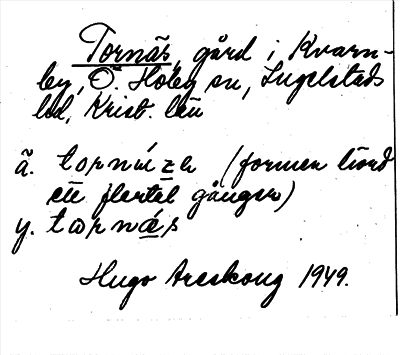 Tornäs, gård i Kvarn-
by, Ö. Hoby sn, Ingelstads
hd, Krist. län
ä. tornúzn (formen hörd
ett flertal gånger)
y. tornǽs
Hugo Areskoug 1949.